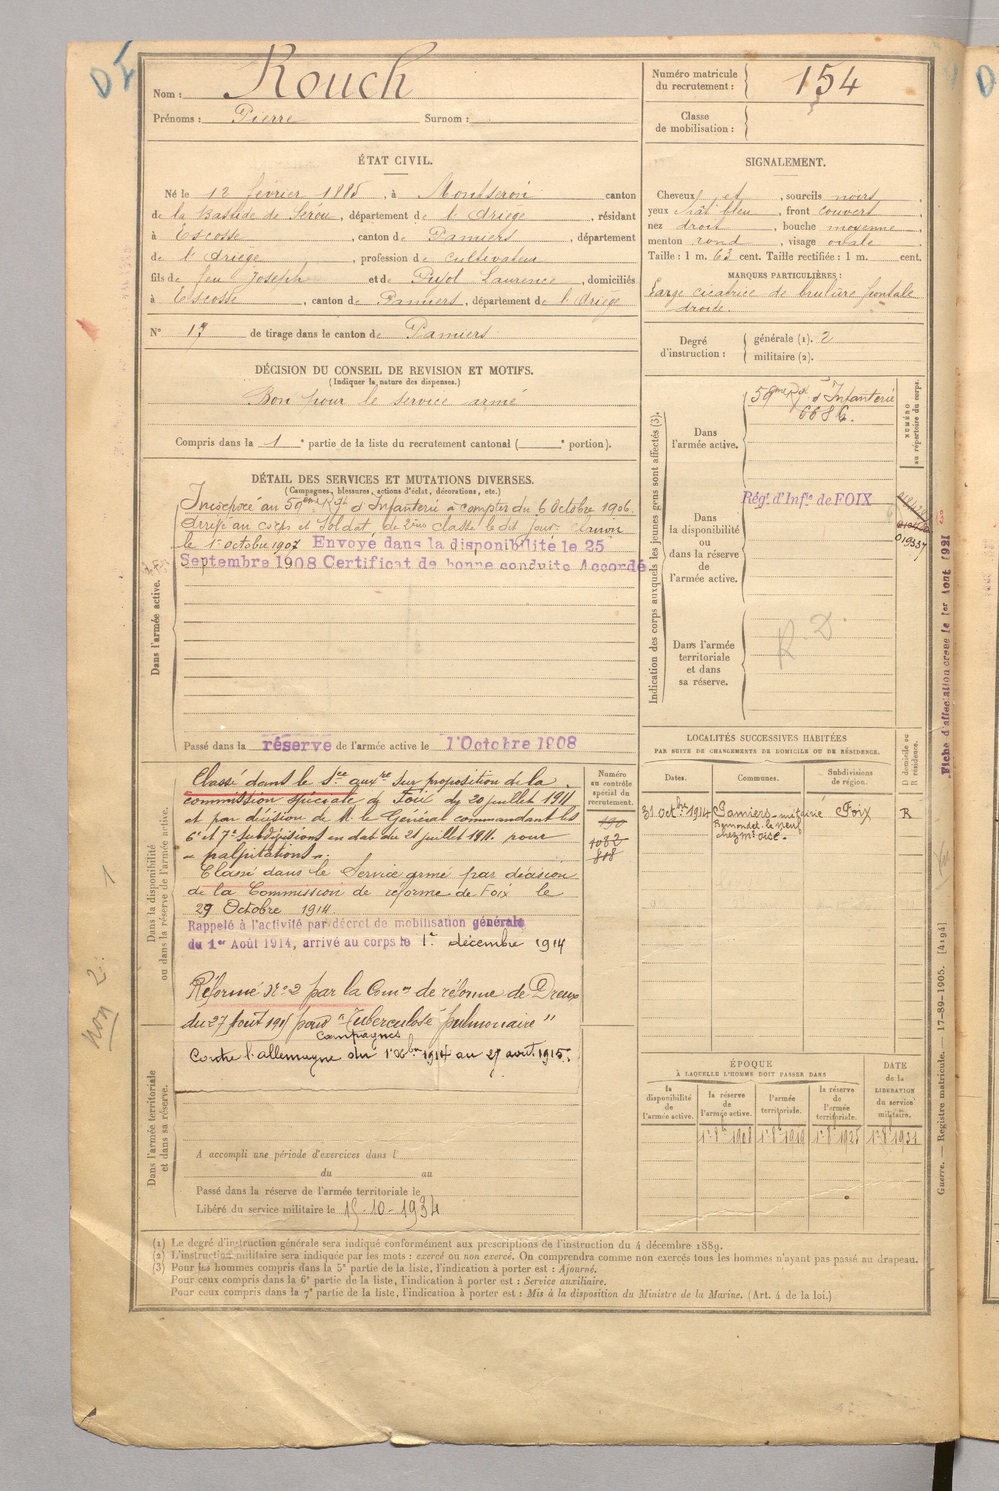 Nom : Rouch
Prénoms : Pierre Surnom :
Numéro matricule du recrutement : 154
Classe de mobilisation :
ÉTAT CIVIL.
Né le 12 février 1885, à Montseron canton
de la Bastide de Sérou, département de l'Ariège, résidant
à Escosse, canton de Pamiers, département
de l'Ariège, profession de cultivateur
fils de feu Joseph et de Pujol Laurence, domiciliés
à Escosse, canton de Pamiers, département de l'Ariège
N° 17 de tirage dans le canton de Pamiers
SIGNALEMENT.
Cheveux et, sourcils noirs,
yeux chât bleu, front couvert,
nez droit, bouche moyenne,
menton rond, visage ovale
Taille : 1 m. 63 cent. Taille rectifiée : 1 m. cent.
MARQUES PARTICULIÈRES :
Large cicatrice de brulure frontale
droite.
Degré d'instruction : générale (1). 2
militaire (2).
DÉCISION DU CONSEIL DE REVISION ET MOTIFS.
(Indiquer la nature des dispenses.)
Bon pour le service armé
Compris dans la 1e partie de la liste du recrutement cantonal ( e portion).
DÉTAIL DES SERVICES ET MUTATIONS DIVERSES.
(Campagnes, blessures, actions d'éclat, décorations, etc.)
Dans l'armée active.
Incorporé au 59ème Rgt d'Infanterie à compter du 6 Octobre 1906.
Arrivé au corps et Soldat de 2ème classe le dit jour.
le 1er octobre 1907 Envoyé dans la disponibilité le 25
Septembre 1908 Certificat de bonne conduite Accordé
Passé dans la réserve de l'armée active le 1er Octobre 1908
Indication des corps auxquels les jeunes gens sont affectés (3).
NUMÉRO au répertoire du corps.
Dans l'armée active.
59ème Rgt d'Infanterie
6686.
Dans la disponibilité ou dans la réserve de l'armée active.
Régt d'Infie de FOIX
019337
Dans l'armée territoriale et dans sa réserve.
R.D.
Fiche d'affectation créée le 1er Aout 1921
Dans la disponibilité ou dans la réserve de l'armée active.
Classé dans le Sce auxre sur proposition de la
commission spéciale de Foix du 20 juillet 1911
et par décision de M. le Général commandant les
6e et 7e Subdivisions en date du 21 juillet 1911. pour
« palpitations ».
Classé dans le Service armé par décision
de la Commission de réforme de Foix le
29 Octobre 1914.
Rappelé à l'activité par décret de mobilisation générale
du 1er Août 1914, arrivé au corps le 1er décembre 1914
Réformé N° 2 par la Comon de réforme de Dreux
du 27 Août 1915 pour "Tuberculose pulmonaire"
Campagnes
Contre l'allemagne du 1er Xbre 1914 au 27 août 1915.
Numéro au contrôle spécial du recrutement.
190
1032
818
LOCALITÉS SUCCESSIVES HABITÉES
PAR SUITE DE CHANGEMENTS DE DOMICILE OU DE RÉSIDENCE.
Dates. Communes. Subdivisions de région. D domicile ou R résidence.
31 Octbre 1914 Pamiers - métairie Foix R
chez Mr
Dans l'armée territoriale et dans sa réserve.
A accompli une période d'exercices dans l
du au
Passé dans la réserve de l'armée territoriale le
Libéré du service militaire le 15-10-1934
ÉPOQUE
À LAQUELLE L'HOMME DOIT PASSER DANS
la disponibilité de l'armée active. la réserve de l'armée active. l'armée territoriale. la réserve de l'armée territoriale. DATE de la LIBÉRATION du service militaire.
1er 8bre 1908 1er 8bre 1919 1er 8bre 1925 1er 8bre 1931
(1) Le degré d'instruction générale sera indiqué conformément aux prescriptions de l'instruction du 4 décembre 1889.
(2) L'instruction militaire sera indiquée par les mots : exercé ou non exercé. On comprendra comme non exercés tous les hommes n'ayant pas passé au drapeau.
(3) Pour les hommes compris dans la 5e partie de la liste, l'indication à porter est : Ajourné.
Pour ceux compris dans la 6e partie de la liste, l'indication à porter est : Service auxiliaire.
Pour ceux compris dans la 7e partie de la liste, l'indication à porter est : Mis à la disposition du Ministre de la Marine. (Art. 4 de la loi.)
Guerre. — Registre matricule. — 17-89-1905. [4194]